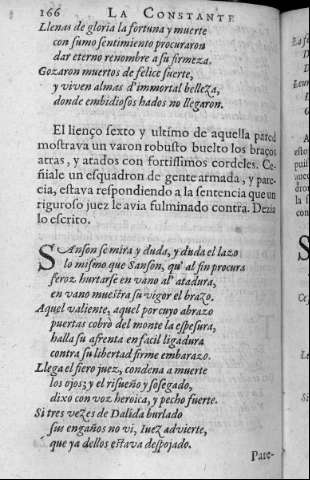 166 LA CONSTANTE
Llenas de gloria la fortuna y muerte
con sumo sentimiento procuraron
dar eterno renombre a su firmeza.
Gozaron muertos de felice suerte,
y viven almas d'immortal belleza,
donde embidiosos hados no llegaron.
El lienço sexto y ultimo de aquella pared
mostrava un varon robusto buelto los braços
atras, y atados con fortissimos cordeles. Ce-
ñiale un esquadron de gente armada, y pare-
cia, estava respondiendo a la sentencia que un
riguroso juez le avia fulminado contra. Dezia
lo escrito.
SAnson se mira y duda, y duda el lazo
lo mismo que Sanson, qu' al fin procura
feroz hurtarse en vano al' atadura,
en vano muestra su vigor el brazo.
Aquel valiente, aquel por cuyo abrazo
puertas cobrò del monte la espesura,
halla su afrenta en facil ligadura
contra su libertad firme embarazo.
Llega el fiero juez, condena a muerte
los ojos; y el risueño y sosegado,
dixo con voz heroica, y pecho fuerte.
Si tres vezes de Dalida burlado
sus engaños no vi, Iuez advierte,
que ya dellos estava despojado.
Pare-